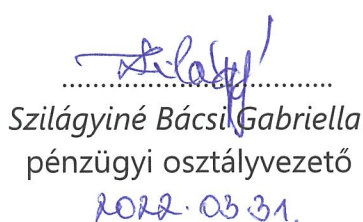 Szilágyi
..............................
Szilágyiné Bácsi Gabriella
pénzügyi osztályvezető
2022.03.31.